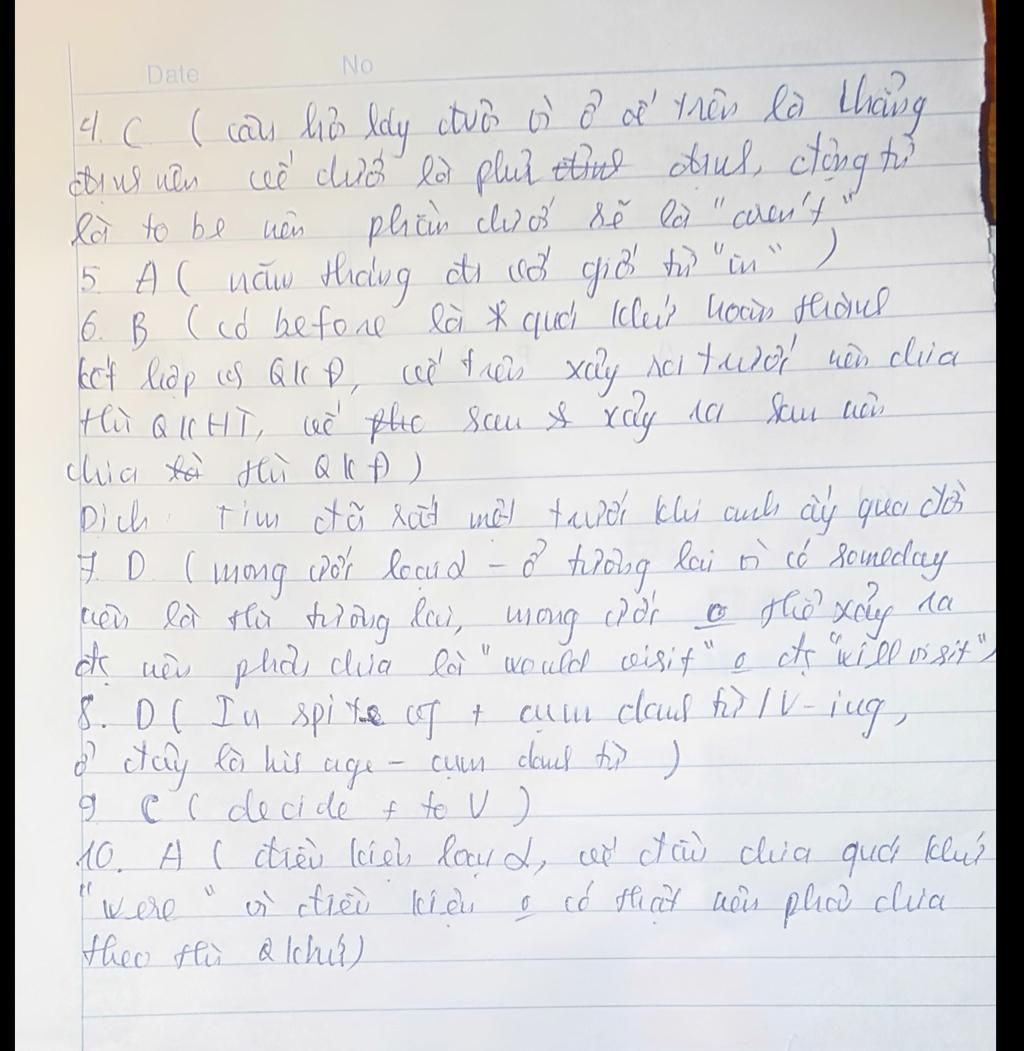 Date No
4. C ( câu hỏi láy đuôi vì ở vế trên là khẳng
định nên vế dưới là phủ định, động từ
là to be nên phần dưới sẽ là "aren't"
5. A ( năm tháng đi với giới từ "in" )
6. B ( có before là quá khứ hoàn thành
kết hợp với QKĐ, vế trên xảy ra trước nên chia
thì QKHT, vế sau xảy ra sau nên
chia thì QKĐ )
Dịch : Tim đã rất mệt trước khi anh ấy qua đời
7. D ( mong ước loại 2 - ở tương lai vì có someday
nên là thì tương lai, mong ước thể xảy ra
nên phải chia là "would visit" "will visit")
8. D ( In spite of + cụm danh từ / V-ing,
ở đây là his age - cụm danh từ )
9 C ( decide + to V )
10. A ( điều kiện loại 2, vế đầu chia quá khứ
"were" vì điều kiện có thật nên phải chia
theo thì Qkhứ)